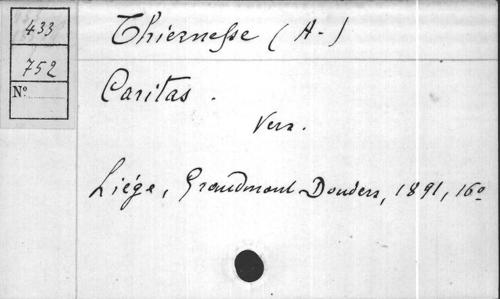 433
752
N°
Thiernesse (A-)
Caritas.
Vers.
Liége, Grandmont Donders, 1891, 16°